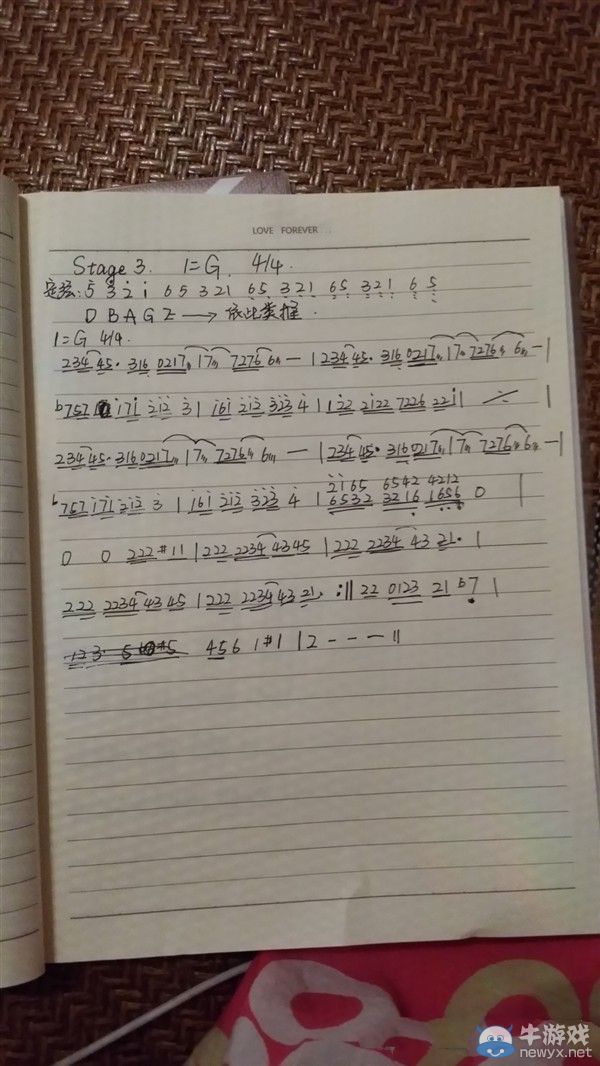 LOVE FOREVER...
Stage 3. 1=G. 4/4.
定弦: 5 3̇ 2̇ i 6 5 3 21 65 3 21 65 321 6 5
D B A G E → 依此类推.
1=G 4/4.
234 45. 316 0217 17 7276 6 — | 234 45. 316 0217 17 7276 6 — |
b757 i7i 2̇i2̇ 3̇ | i6i 2̇i2̇ 3̇2̇3̇ 4̇ | 122 2122 7226 22i |
234 45. 316 0217 17 7276 6 — | 234 45. 316 0217 17 7276 6 — |
b757 i7i 2̇i2̇ 3̇ | i6i 2̇i2̇ 3̇2̇3̇ 4̇ | 6532 3216 1656 0 |
2̇i65 6542 4212
0 0 222 #11 | 222 2234 4345 | 222 2234 43 21. |
222 2234 43 45 | 222 2234 43 21. :|| 22 0123 21 b7 |
456 1 #1 | 2 - - - ||
牛游戏
newyx.net